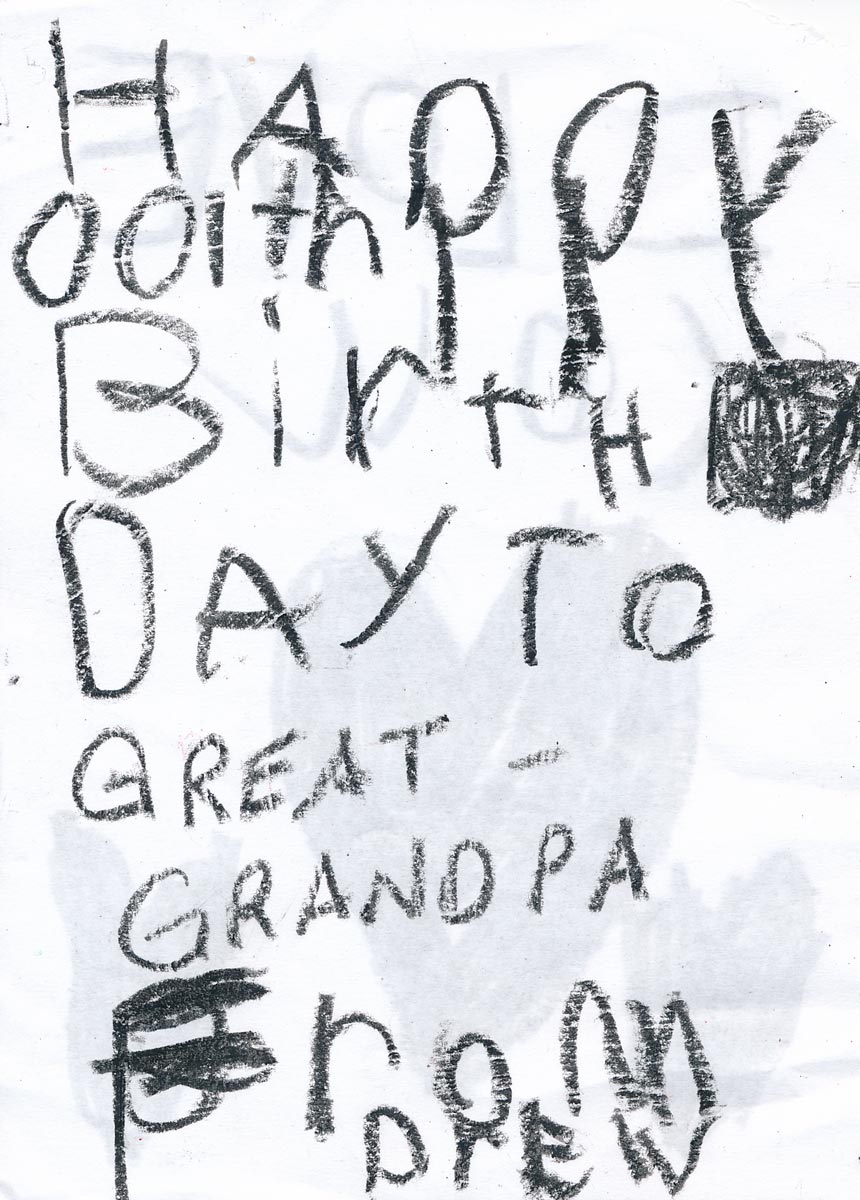 HAppy
001th
BirtH
DAY TO
GREAT -
GRANDPA
From
DrEW